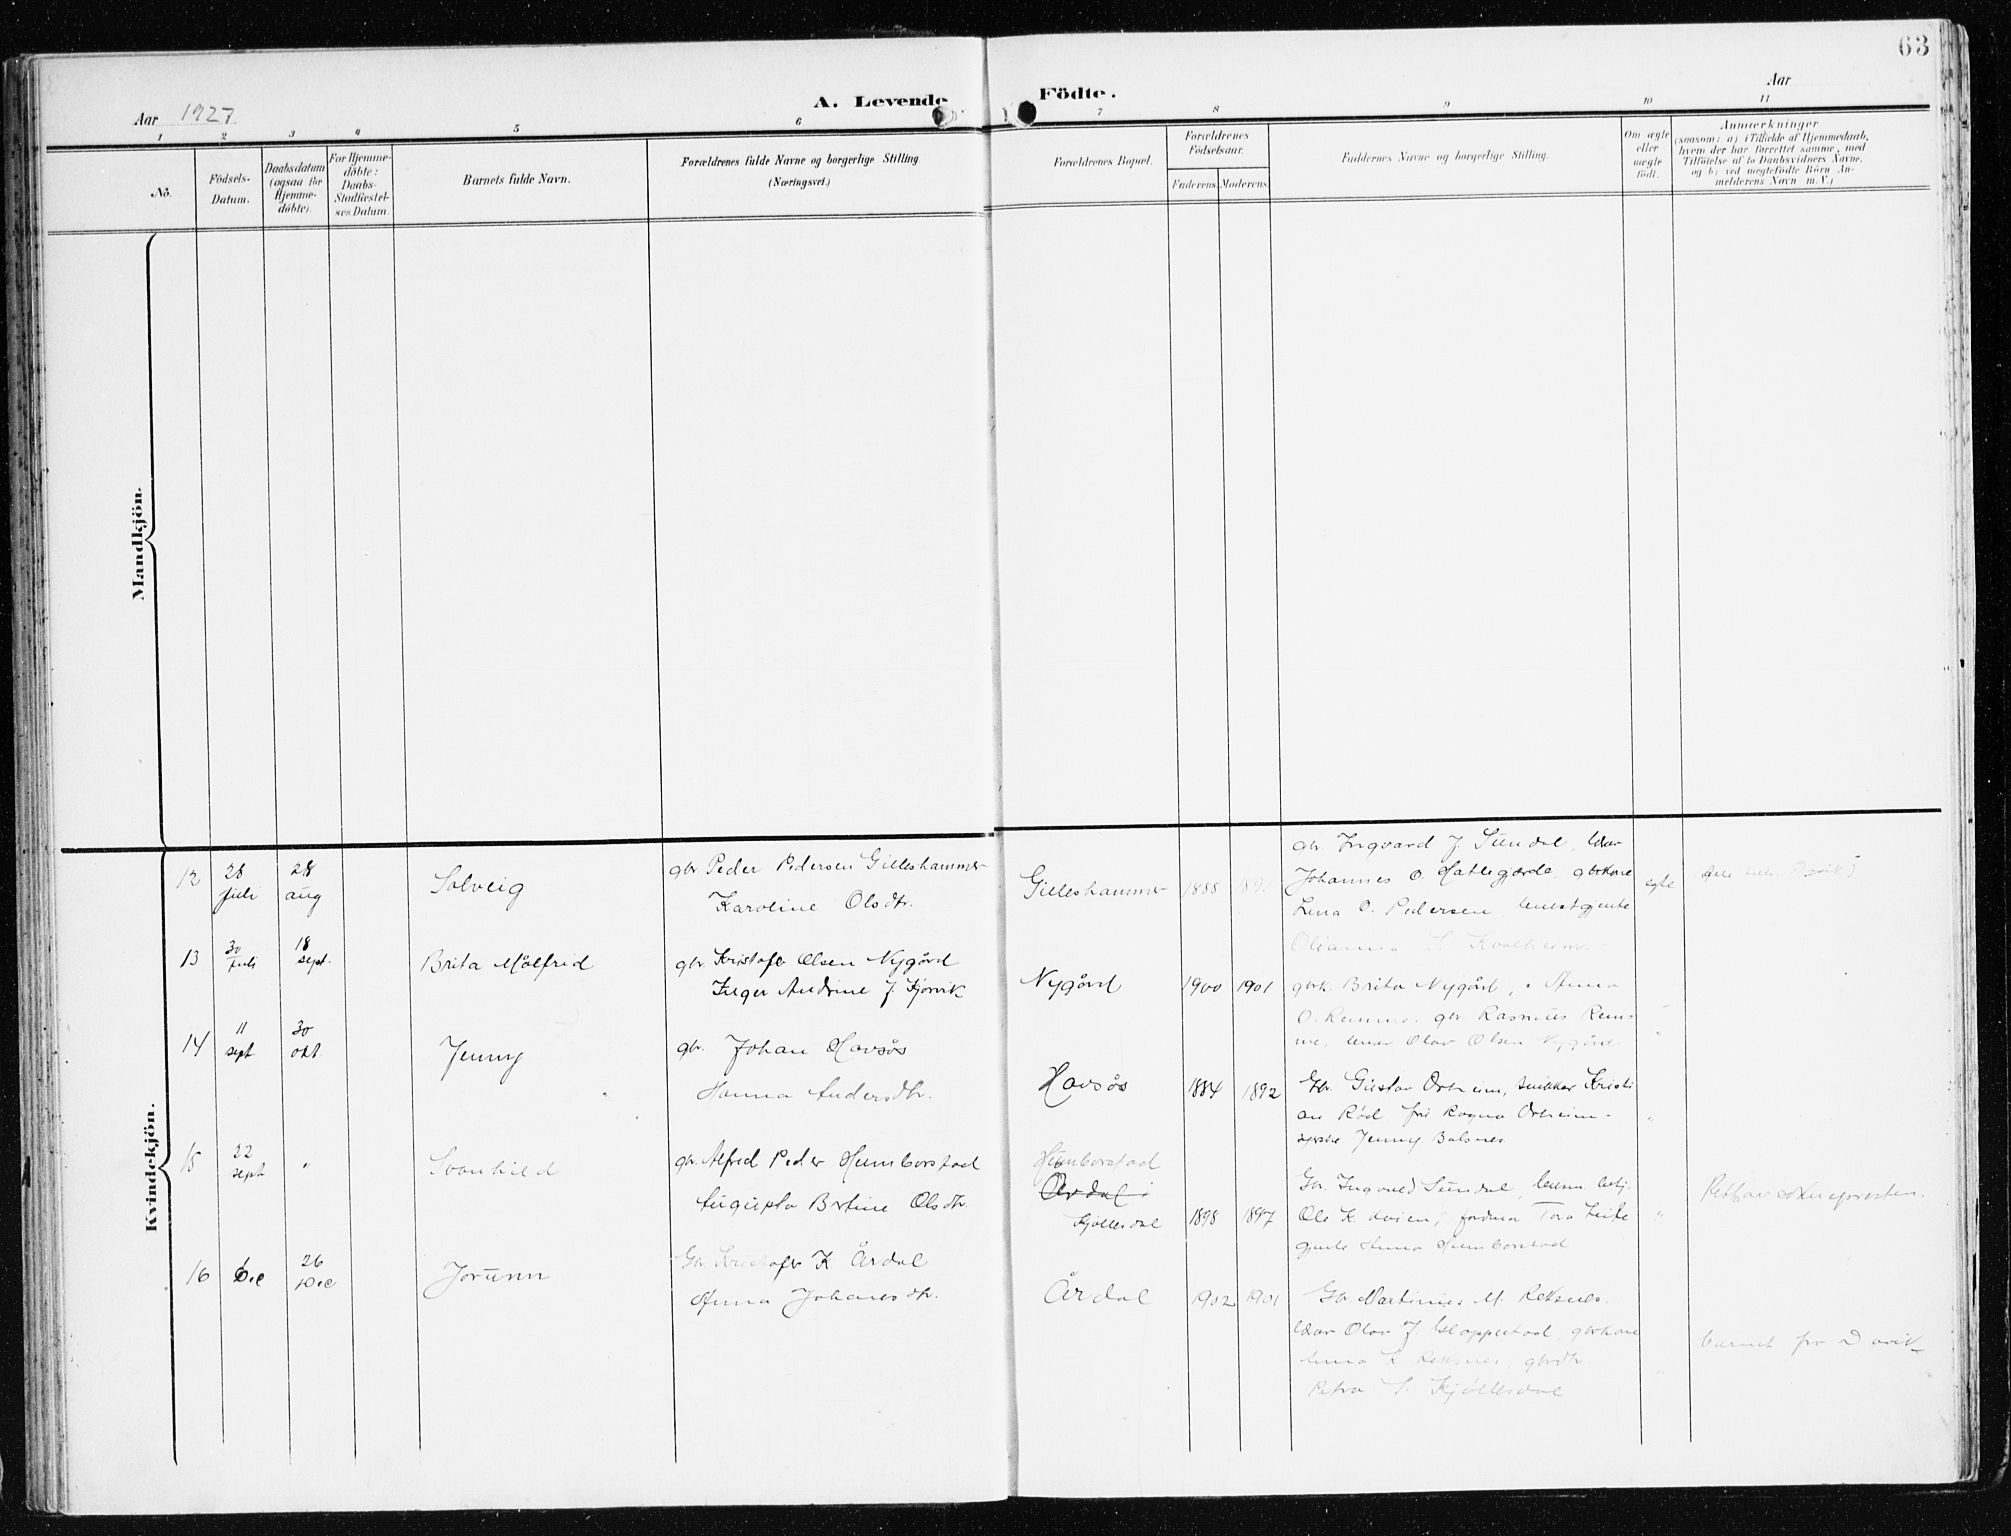 63
Aar 1927
A. Levende
Födte.
Aar
1 2 3 4 5 6 7 8 9 10 11
No.
Födsels-
Datum.
Daabsdatum
(ogsaa for
Hjemme-
döbte).
For Hjemme-
döbte:
Daabs-
Stadfæstel-
ses Datum.
Barnets fulde Navn.
Forældrenes fulde Navne og borgerlige Stilling.
(Næringsvei.)
Forældrenes Bopæl.
Forældrenes
Födselsaar.
Faderens.
Moderens.
Faddernes Navne og borgerlige Stilling.
Om ægte
eller
uægte
födt.
Anmærkninger
(saasom: a) i Tilfælde af Hjemmedaab,
hvem der har forrettet samme, med
Tilföielse af to Daabsvidners Navne.
og b) ved uægtefödte Börn An-
melderens Navn m. V.)
Mandkjön.
Kvindekjön.
12
28
juli
28
aug
Solveig
gbr. Peder Pedersen Gilleshammer
Karoline Olsdtr.
Gilleshammer
1888
gbr. Ingvard J. Sundal,
Johannes O. Hatlegjærde, gbrkone
Lina O. Pedersen,
Olianna S. Kvalheim
egte
13
30
juli
18
sept.
Brita Målfrid
gbr. Kristofer Olsen Nygård
Inger Andrine J. Kjørvik
Nygård
1900
1901
gbrk. Brita Nygård, " Anna
O. Remme. gbr Rasmus Rem-
me, Olav Olsen Nygård.
"
14
11
sept
30
okt.
Jenny
gbr. Johan Havsøs
Hanna Andersdtr.
Havsøs
1884
1892
Gbr. Gustav Orheim, snikkar Kristi
an Rød, fru Ragna Orheim-
Jenny Balsnes
"
15
22
sept
"
Svanhild
gbr. Alfred Peder Humborstad
Augusta Bertine Olsdtr.
Humborstad
Årdal
Kjøllesdal
1898
1897
Gbr. Ingvald Sundal,
Ole K. Tora
gjente Anna Humborstad
"
16
6
Dec
26
Dec
Jorunn
Gbr Kristofer K Årdal
Anna Johansdtr.
Årdal
1902
1901
Gbr Martinus M. Reksnes.
Olav J. Hoppestad, gbrkone
Anna K Reksnes, gbrdtr
Petra S. Kjøllesdal
"
barnet fr Davik